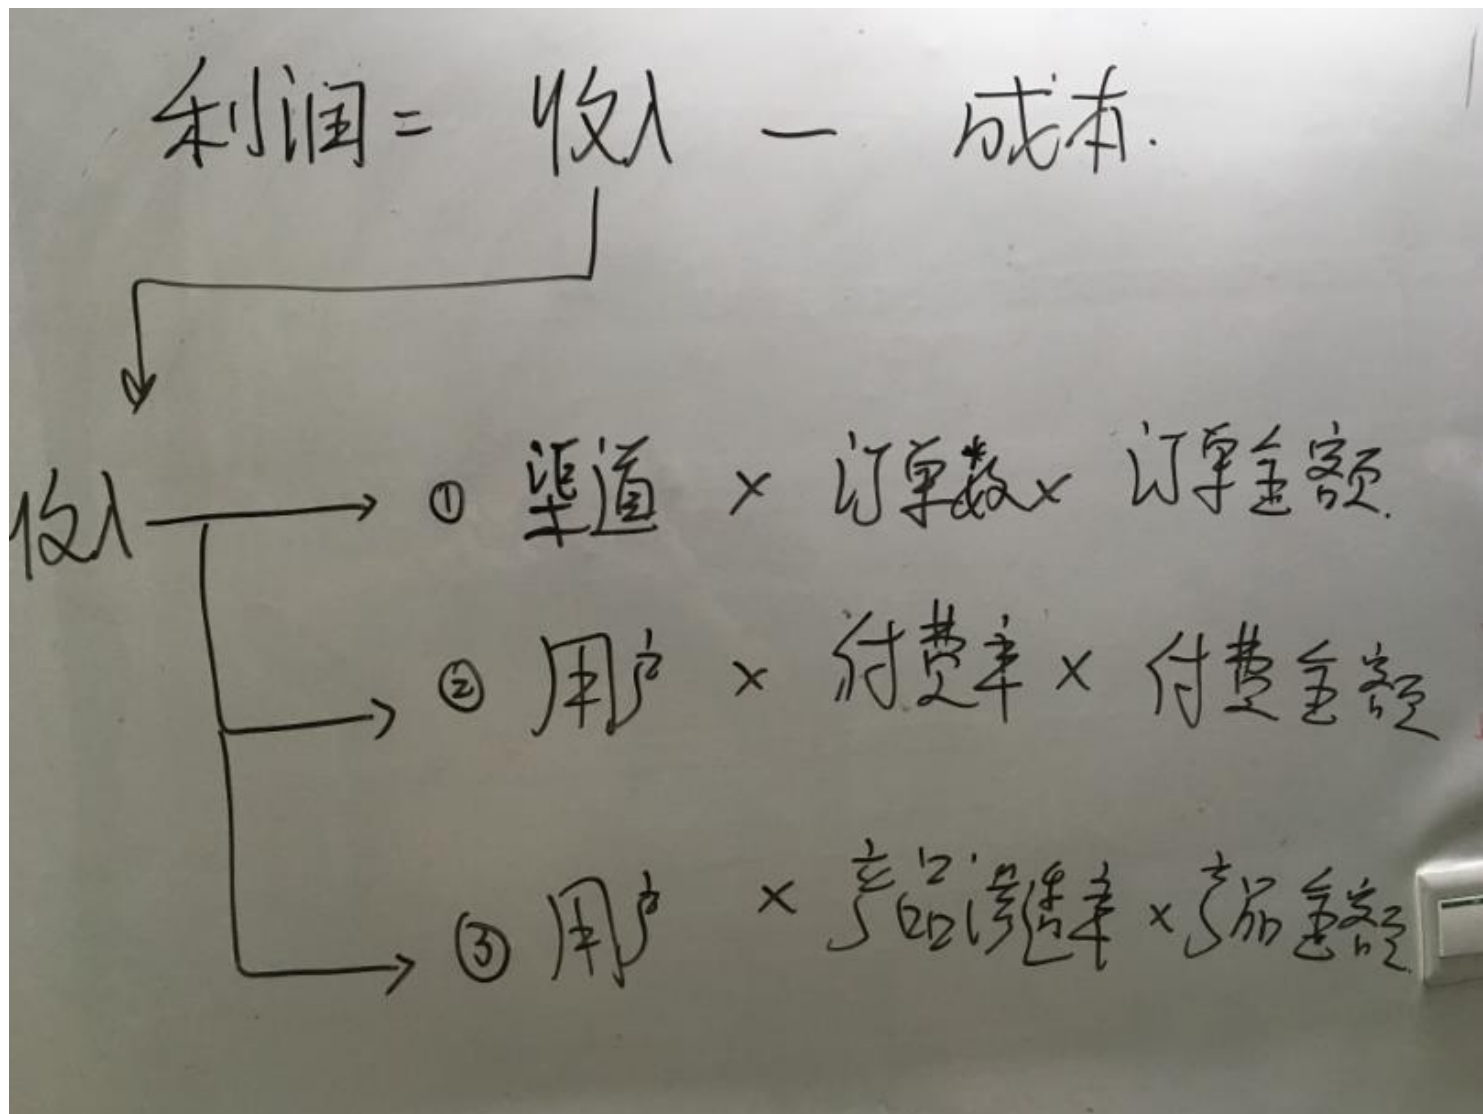 利润= 收入 — 成本.
收入
① 渠道 × 订单数 × 订单金额.
② 用户 × 付费率 × 付费金额
③ 用户 × 产品渗透率 × 产品金额